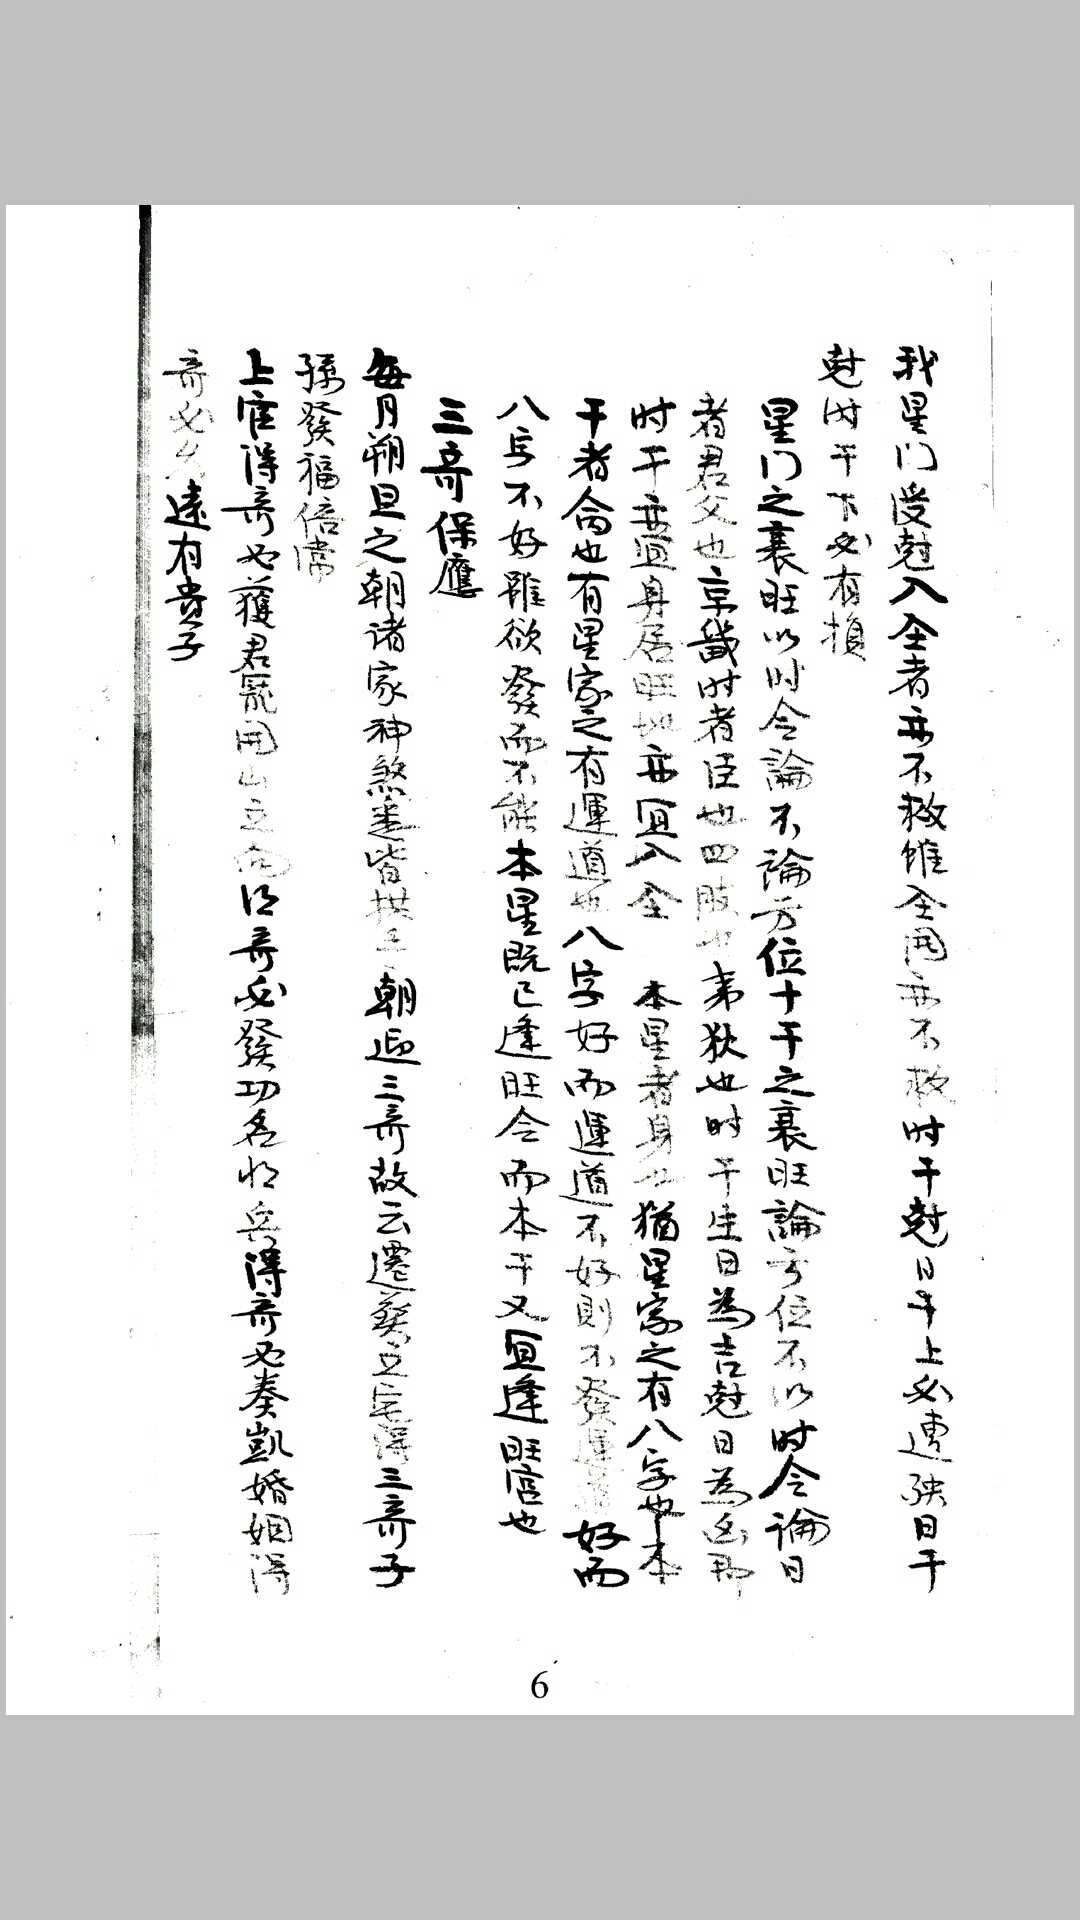 我星门受尅入仝者亦不救惟仝用亦不救时干尅日干上必遭殃日干
尅时干下必有損
星门之衰旺以时令論不論方位十干之衰旺論方位不以时令論日
者君父也京畿时者臣也四肢也夷狄也时干生日為吉尅日為凶那
时干亦逥身居旺地亦宜入仝 本星者身也猶星家之有八字也本
干者命也有星家之有運道也八字好而運道不好則不發運道好而
八字不好雖欲發而不能本星既已逢旺令而本干又宜逢旺宫也
三奇保應
每月朔旦之朝诸家神煞悉皆拱手朝迎三奇故云遷葵立宅得三奇子
孫發福倍常
上官得奇必獲君寵開山立向得奇必發功名将兵得奇必奏凱婚姻得
奇必 遠有貴子
6